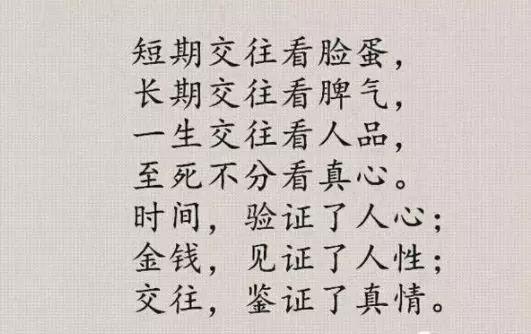 短期交往看脸蛋，
长期交往看脾气，
一生交往看人品，
至死不分看真心。
时间，验证了人心；
金钱，见证了人性；
交往，鉴证了真情。